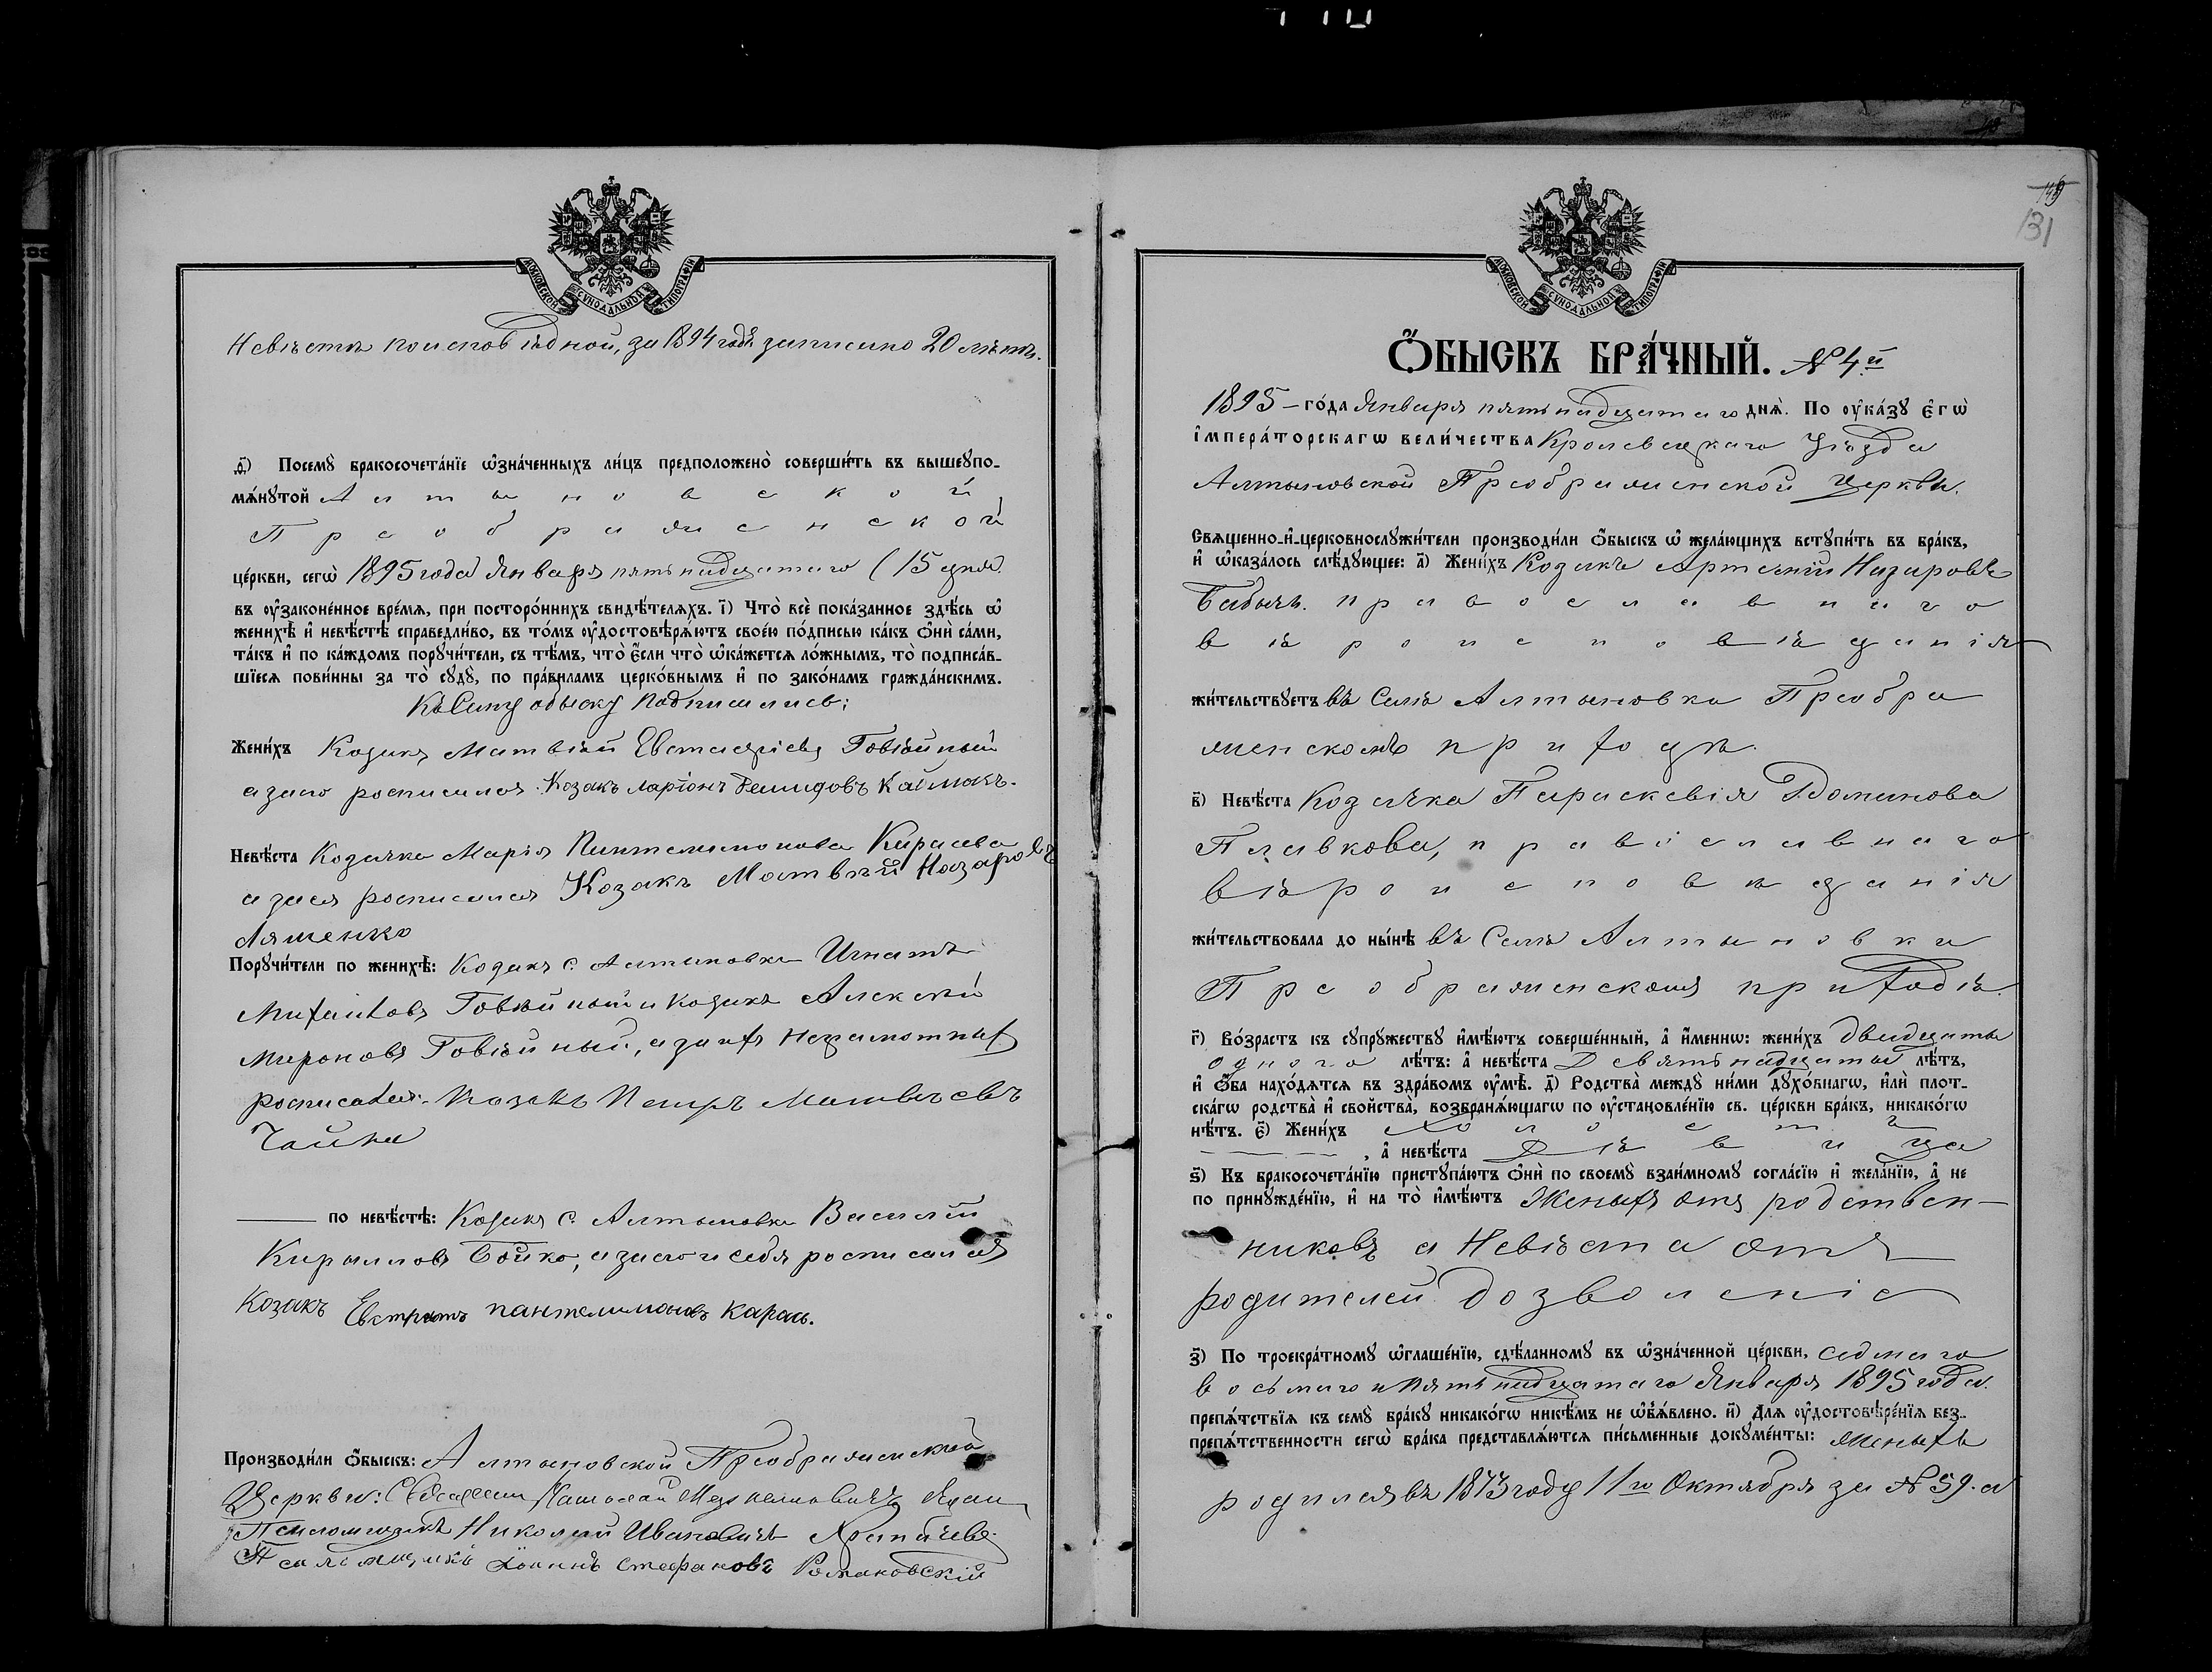 МОСКОВСКОЙ СѴНОДАЛЬНОЙ ТИПОГРАФІИ
Невѣста по исповѣдной, за 1894 годъ записано 20 лѣтъ.
д҃) Посемꙋ̀ бракосочета́нїе ѡ҆зна́ченныхъ ли́цъ предположено̀ соверши́ть въ вышеꙋпо-
мѧ́нꙋтой Алтыновской
Преображенской
це́ркви, сегѡ̀ 1895 года Января пятьнадцатаго (15 дня
въ ᲂу҆законе́нное вре́мѧ, при посторо́ннихъ свидѣ́телѧхъ. і҃) Что̀ всѐ пока́занное здѣ́сь ѡ҆
женихѣ̀ и҆ невѣ́стѣ справедли́во, въ то́мъ ᲂу҆достовѣрѧ́ютъ свое́ю по́дписью ка́къ ѻ҆нѝ са́ми,
та́къ и҆ по ка́ждомъ порꙋчи́тели, съ тѣ́мъ, что̀ є҆́сли что̀ ѡ҆ка́жетсѧ ло́жнымъ, то̀ подписа́в-
шїесѧ пови́нны за то̀ сꙋдꙋ̀, по пра́виламъ церко́внымъ и҆ по зако́намъ гражда́нскимъ.
Къ Сему обыску подписались:
Жени́хъ Козакъ Матвѣй Евстафіевъ Говѣйный
а за него росписался Козакъ Ларіонъ Демидовъ Каймакъ.
Невѣ́ста Козачка Марія Пантелимонова
а за ея росписался Козакъ Матвѣй Назаровъ
Ляшенко
Порꙋчи́тели по женихѣ̀: Козакъ с. Алтыновки Игнатъ
Михайловъ Говѣйный и Козакъ Алексѣй
Мироновъ Говѣйный, а за ихъ неграмотныхъ
росписался Козакъ Петръ Матвѣевъ
Чайка
по невѣ́стѣ: Козакъ с. Алтыновки Василій
Кириловъ Бойко, а за его и себя росписался
Козакъ Евстратъ Пантелимоновъ Карась.
Производи́ли ѻ҆́быскъ: Алтыновской Преображенской
Церкви: Священникъ
Псаломщикъ Николай Ивановичъ
Псаломщикъ Іоаннъ Стефановъ Романовскій
131
МОСКОВСКОЙ СѴНОДАЛЬНОЙ ТИПОГРАФІИ
Ѻ҆́БЫСКЪ БРА́ЧНЫЙ. № 4й
1895 – го́да Января пятьнадцатаго днѧ̀. По ᲂу҆ка́зꙋ є҆гѡ̀
і҆мпера́торскагѡ вели́чества Кролевецкаго Уѣзда
Алтыновской Преображенской церкви.
Свѧщенно-и҆-церковнослꙋжи́тели производи́ли ѻ҆́быскъ ѡ҆ жела́ющихъ встꙋпи́ть въ бра́къ,
и҆ ѡ҆каза́лось слѣ́дꙋющее: а҃) Жени́хъ Козакъ Артемій Назаровъ
Бабичъ. православнаго
вѣроисповѣданія
жи́тельствꙋетъ въ Селѣ Алтыновки Преобра
женскомъ приходѣ.
в҃) Невѣ́ста Козачка Параскевія Доминова
Плавкова, православнаго
вѣроисповѣданія
жи́тельствовала до ны́нѣ въ Селѣ Алтыновки
Преображенскомъ приходѣ.
г҃) Во́зрастъ къ сꙋпрꙋ́жествꙋ и҆мѣ́ютъ соверше́нный, а҆̀ и҆́меннѡ: жени́хъ двадцать
одного лѣ́тъ: а҆̀ невѣ́ста Девятьнадцать лѣ́тъ,
и҆ ѻ҆́ба нахо́дѧтсѧ въ здра́вомъ ᲂу҆мѣ̀. д҃) Родства̀ междꙋ ни́ми дꙋхо́внагѡ, и҆лѝ плот-
ска́гѡ родства̀ и҆ свойства̀, возбранѧ́ющагѡ по ᲂу҆становле́нїю св. це́ркви бра́къ, никако́гѡ
нѣ́тъ. є҃) Жени́хъ Холостъ
, а҆̀ невѣ́ста Дѣвица
ѕ҃) Къ бракосочета́нїю пристꙋпа́ютъ ѻ҆нѝ по своемꙋ̀ взаи́мномꙋ согла́сїю и҆ жела́нїю, а҆̀ не
по принꙋжде́нїю, и҆ на то̀ и҆мѣ́ютъ Женихъ отъ родствен-
никовъ а Невѣста отъ
родителей дозволеніе
з҃) По троекра́тномꙋ ѡ҆глаше́нїю, сдѣ́ланномꙋ въ ѡ҆зна́ченной це́ркви, седмаго
восьмаго и пятьнадцатаго Января 1895 года.
препѧ́тствїѧ къ семꙋ̀ бра́кꙋ никако́гѡ никѣ́мъ не ѡ҆б̾ѧ́влено. и҃) Длѧ ᲂу҆достовѣре́нїѧ без-
препѧ́тственности сегѡ̀ бра́ка представлѧ́ютсѧ пи́сьменные докꙋме́нты: Женихъ
родился въ 1873 году 11го Октября за № 59. а